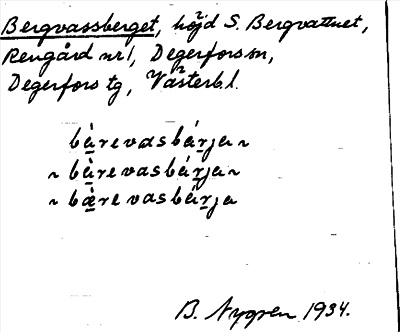 Bergvassberget, höjd S. Bergvattnet,
Rengård nr 1, Degerfors sn,
Degerfors tg, Västerb. l.
bà̱revasbáṟja ~
~ bà̱revasbáṟja ~
~ bæ̱̀revasbáṟja
B. Nygren 1934.